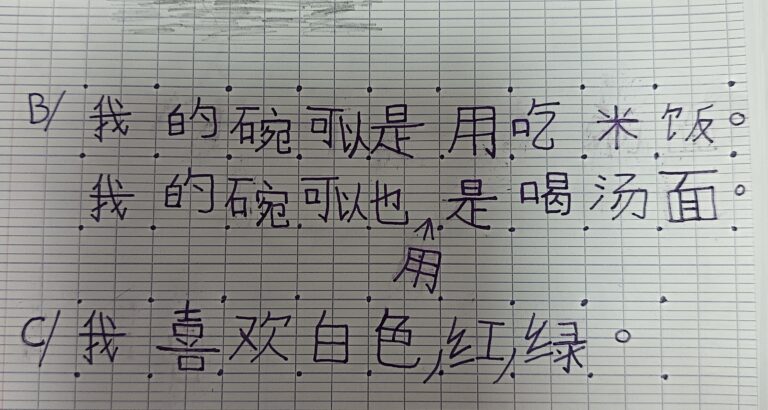 B/ 我的碗可以是用吃米饭。
我的碗可以也是喝汤面。
用
C/ 我喜欢白色,红,绿。